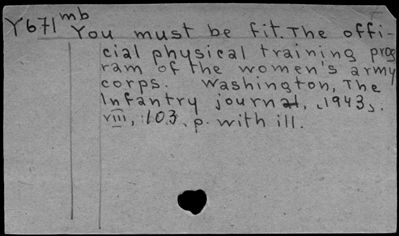 Y671mb
You must be fit. The offi-
cial physical training prog
ram of the women's army
corps. Washington, The
Infantry journal, 1943.
viii, 103, p. with ill.